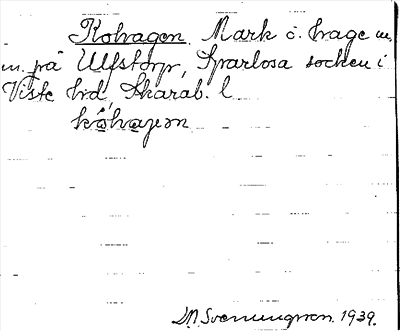 Kohagen. Mark o. hage m.
m. på Ulfstorp, Sparlösa socken i
Viste hd, Skarab. l
kóhaɡen
M. Svenungsson. 1939.